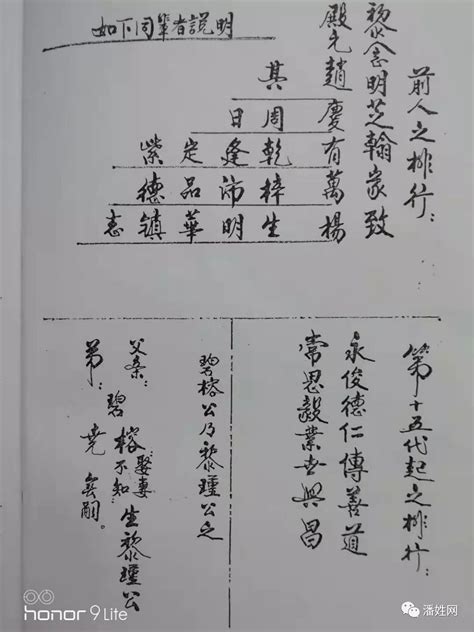 前人之排行：
黎念明芝翰家致
殿元趙慶有萬楊
其周乾梓生
日逢沛明
定品華
紫德镇
志
如下同輩者説明
第十五代起之排行：
永俊德仁傳善道
常恩毅業世興昌
碧榕公乃黎瑾公之
父亲：碧榕娶妻不知生黎瑾公
弟：堯無嗣。
honor 9 Lite
潘姓网